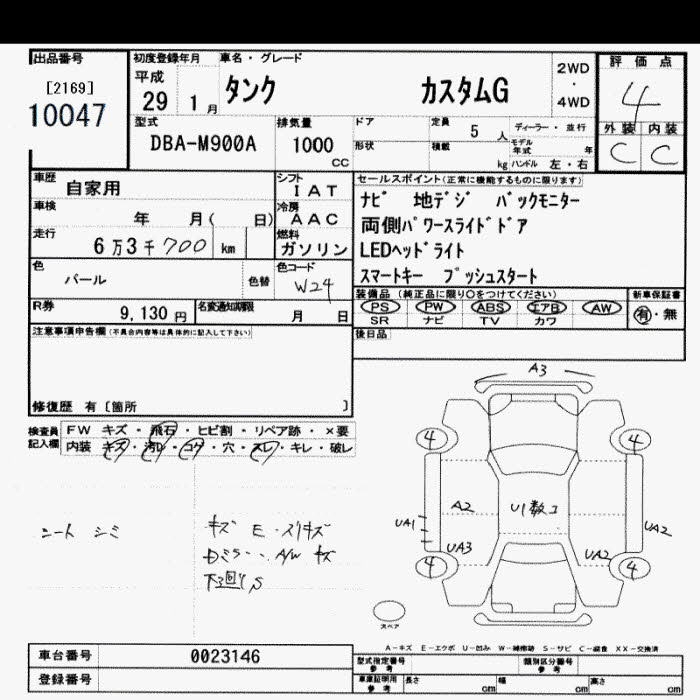 出品番号 初度登録年月 車名・グレード 2WD 評価点
[2169] 平成 タンク カスタムG ・ 4
10047 29 1月 4WD 外装 内装
型式 排気量 ドア 定員 5人 ディーラー・並行 C C
DBA-M900A 1000 形状 積載 モデル年式 年
CC kg ハンドル 左・右
車歴 自家用 シフト IAT セールスポイント(正常に機能するものに限ります)
車検 年 月( 日) 冷房 AAC ナビ 地デジ バックモニター
走行 6万3千700 km 燃料 ガソリン 両側パワースライドドア
色 パール 色替 色コード W24 LEDヘッドライト
スマートキー プッシュスタート
R券 9,130円 名変通知期限 月 日 装備品(純正品に限り○をつけてください) 新車保証書
PS PW ABS エアB AW 有・無
SR ナビ TV カワ
注意事項申告欄(不具合内容等は具体的に記入して下さい) 後日品
修復歴 有〔箇所 〕
検査員記入欄 FW キズ・飛石・ヒビ割・リペア跡・×要
内装 キズ・汚れ・コゲ・穴・スレ・キレ・破レ
A3
4 4
A2 U1数コ
UA1 UA2
UA3 UA2
4 4
シート シミ キズ E・スリキズ
Dミラー・A/W キズ
下回りS
スペア
A-キズ E-エクボ U-凹み W-補修跡 S-サビ C-腐食 XX-交換済
車台番号 0023146 型式指定番号 参考 類別区分番号 参考
登録番号 車庫証明用 参考 長さ cm 幅 cm 高さ cm